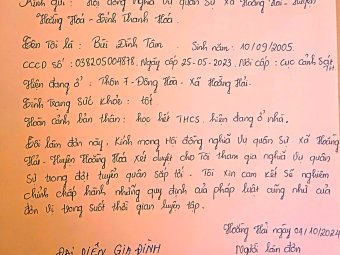 Kính gửi : Hội đồng nghĩa vụ quân sự xã Hoằng Hải - Huyện
Hoằng Hoá - Tỉnh Thanh Hoá.
Tên Tôi là : Bùi Đình Tâm . Sinh năm : 10/09/2005.
CCCD số : 038205004878, Ngày cấp 25-05-2023. Nơi cấp : Cục Cảnh Sát
Hiện đang ở : Thôn 7 - Đông Hoà - Xã Hoằng Hải.
Tình Trạng Sức khỏe : tốt
Hoàn cảnh bản thân : học hết THCS. hiện đang ở nhà.
Tôi làm đơn này. Kính mong Hội đồng nghĩa vụ quân Sự xã Hoằng
Hải - Huyện Hoằng Hoá xét duyệt cho Tôi tham gia nghĩa vụ quân
Sự trong đợt tuyển quân sắp tới. Tôi xin cam kết Sẽ nghiêm
chỉnh chấp hành những quy định của pháp luật cũng như của
đơn vị trong suốt thời gian luyện tập.
Hoằng Hải ngày 04/10/2024
ĐẠI DIỆN GIA ĐÌNH
Người làm đơn